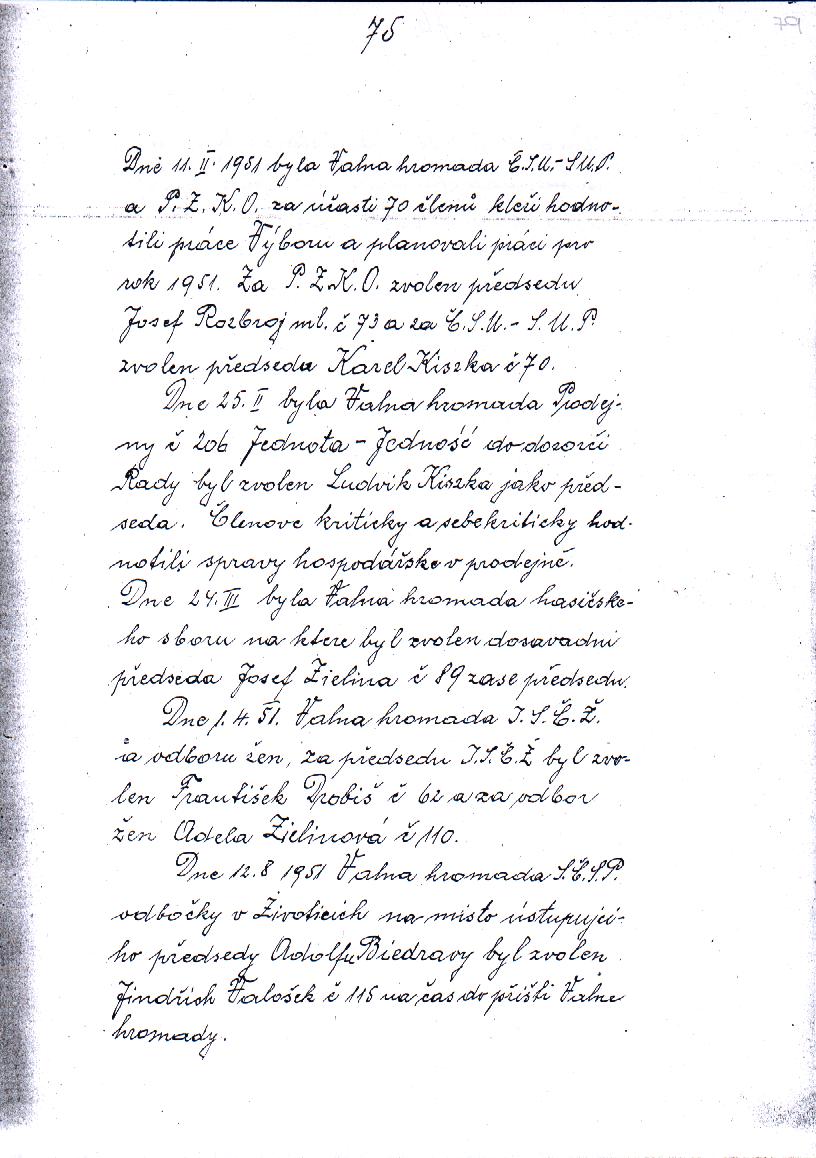 75
79
Dne 11. II. 1951 byla Valna hromada Č.S.M.-S.M.P.
a P.Z.K.O. za účasti 70 členů kteři hodno-
tili práce Výboru a planovali práci pro
rok 1951. Za P.Z.K.O. zvolen předsedu
Josef Rozbroj ml. č 73 a za Č.S.M.-S.M.P.
zvolen předsedu Karel Kiszka č 70.
Dne 25. II byla Valna hromada Prodej-
ny č 206 Jednota - Jedność do dozorči
Rady byl zvolen Ludvik Kiszka jako před-
seda. Členove kriticky a sebekriticky hod-
notili spravy hospodářske v prodejně.
Dne 24. III byla Valná hromada hasičske-
ho sboru na ktere byl zvolen dosavadni
předseda Josef Zielina č 89 zase předsedu.
Dne 1. 4. 51. Valna hromada J.S.Č.Z.
a odboru žen, za předsedu J.S.Č.Z byl zvo-
len František Drobiš č 62 a za odbor
žen Adela Zielinová č 110.
Dne 12.8 1951 Valna hromada S.Č.S.P.
odbočky v Životicich na misto ústupujici-
ho předsedy Adolfu Biedravy byl zvolen
Jindřich Valošek č 115 na čas do přišti Valne
hromady.